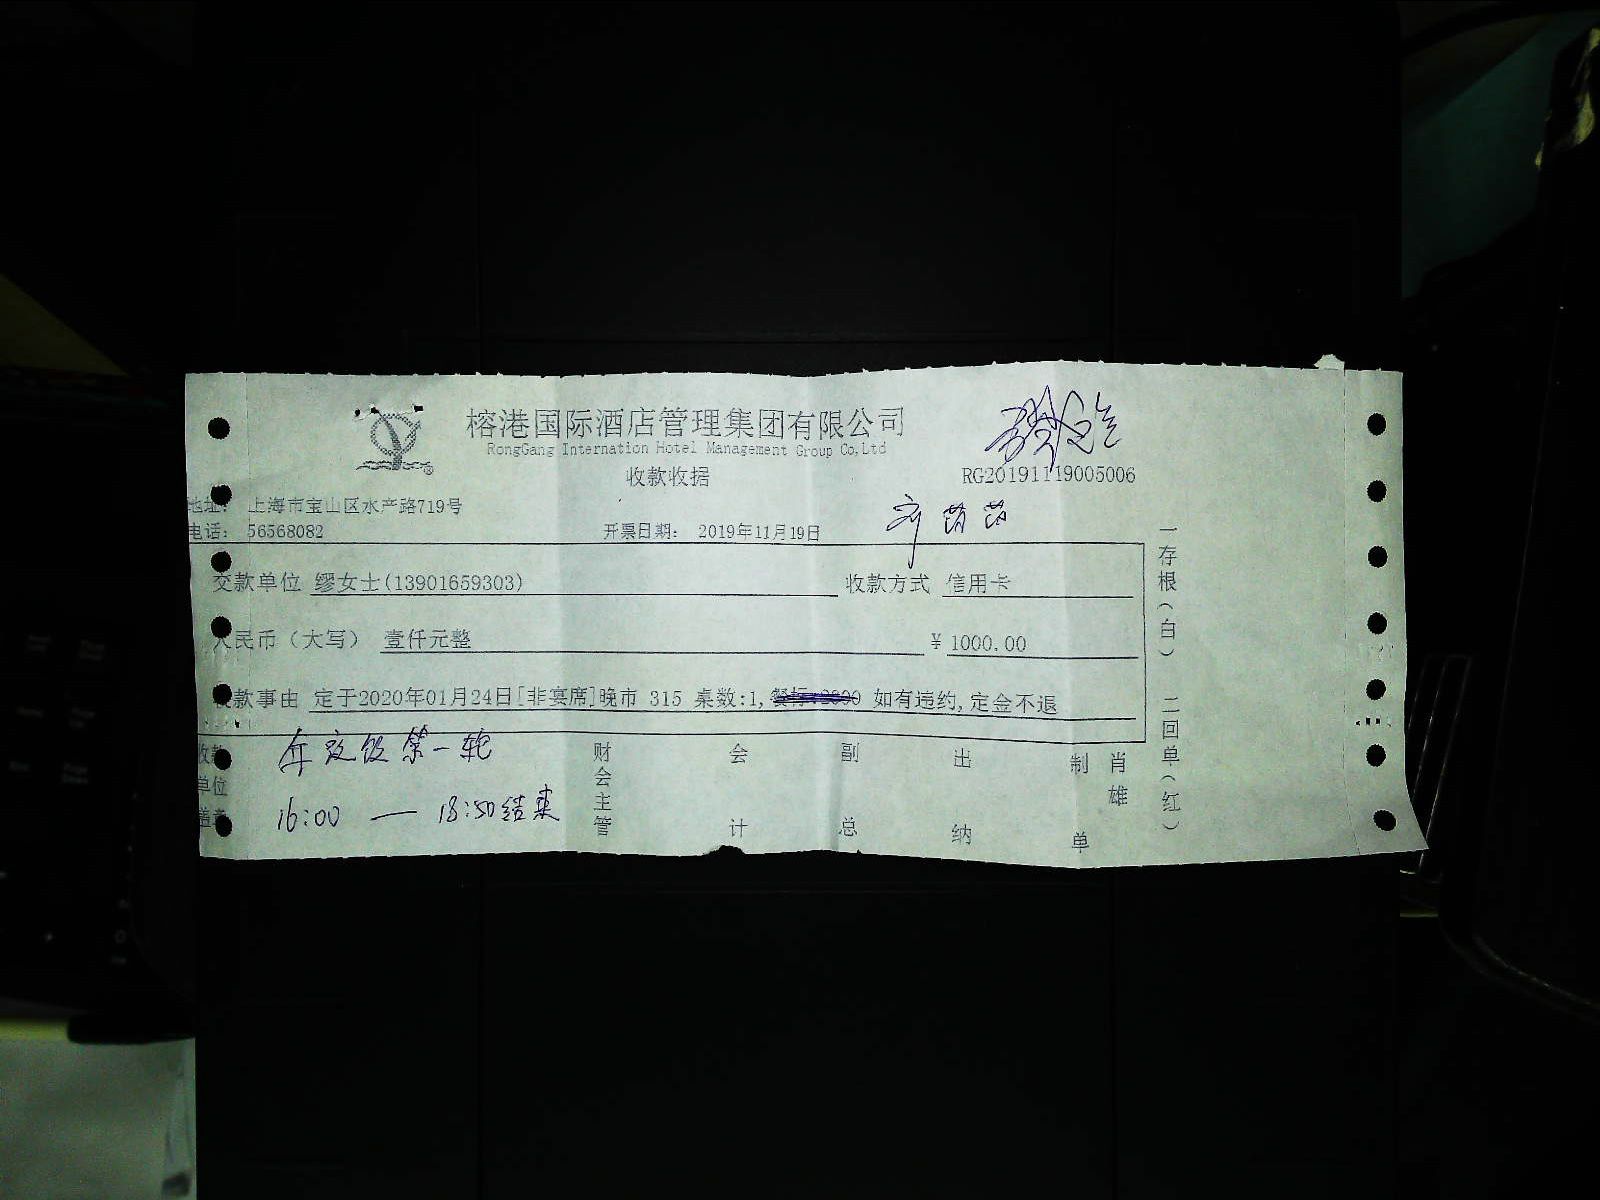 榕港国际酒店管理集团有限公司
RongGang Internation Hotel Management Group Co,Ltd
收款收据
RG20191119005006
地址: 上海市宝山区水产路719号
电话: 56568082
开票日期: 2019年11月19日
交款单位 缪女士(13901659303)
收款方式 信用卡
人民币(大写) 壹仟元整
¥ 1000.00
收款事由 定于2020年01月24日[非宴席]晚市 315 桌数:1, 如有违约,定金不退
年夜饭第一轮
16:00 — 18:50结束
收款单位盖章
财会主管
会计
副总
出纳
制单
肖雄
一存根(白) 二回单(红)